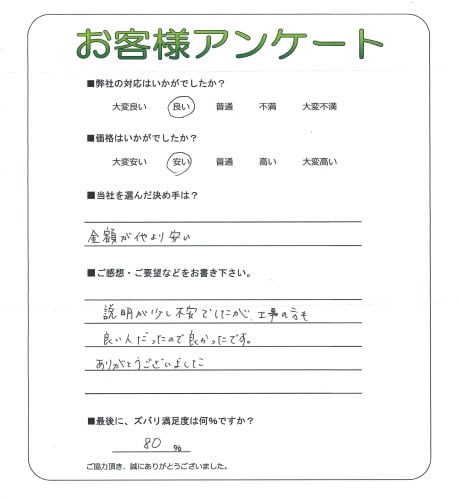 お客様アンケート
■弊社の対応はいかがでしたか？
大変良い 良い 普通 不満 大変不満
■価格はいかがでしたか？
大変安い 安い 普通 高い 大変高い
■当社を選んだ決め手は？
金額が他より安い
■ご感想・ご要望などをお書き下さい。
説明が少し不安でしたが、工事の方も
良い人だったので良かったです。
ありがとうございました
■最後に、ズバリ満足度は何%ですか？
80 %
ご協力頂き、誠にありがとうございました。